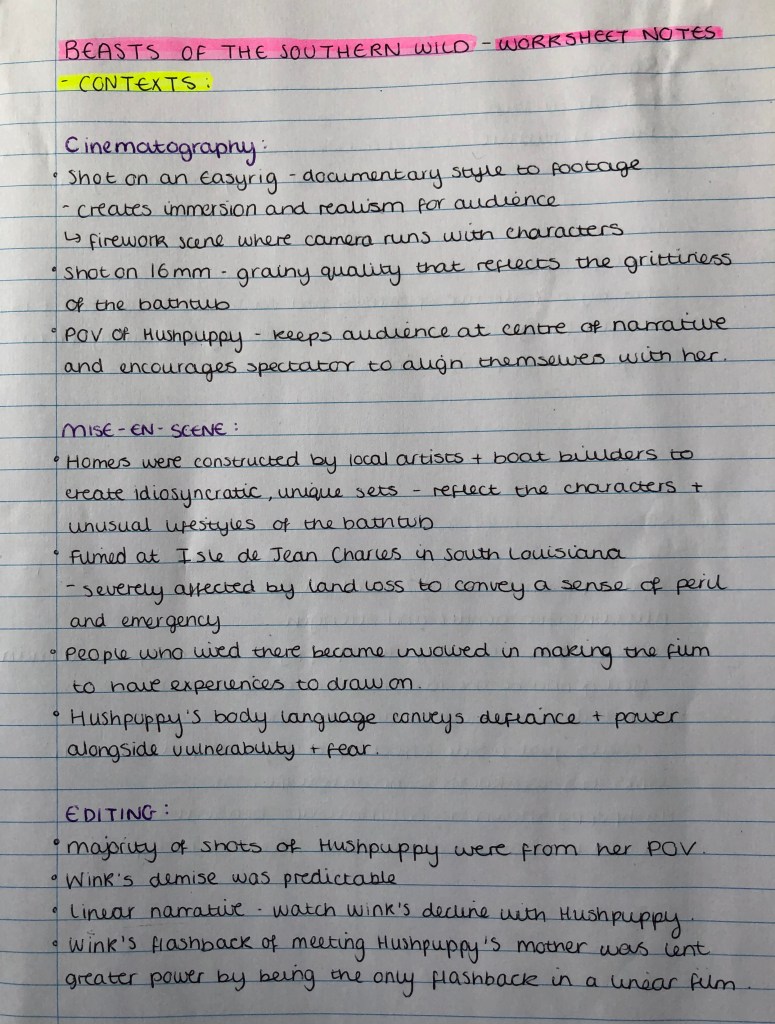 BEASTS OF THE SOUTHERN WILD - WORKSHEET NOTES
- CONTEXTS:
Cinematography:
• Shot on an Easyrig - documentary style to footage
- creates immersion and realism for audience
↳ firework scene where camera runs with characters
• Shot on 16mm - grainy quality that reflects the grittiness
of the bathtub
• POV of Hushpuppy - keeps audience at centre of narrative
and encourages spectator to align themselves with her.
MISE-EN-SCENE:
• Homes were constructed by local artists + boat builders to
create idiosyncratic, unique sets - reflect the characters +
unusual lifestyles of the bathtub
• Filmed at Isle de Jean Charles in South Louisiana
- severely affected by land loss to convey a sense of peril
and emergency
• People who lived there became involved in making the film
to have experiences to draw on.
• Hushpuppy's body language conveys defiance + power
alongside vulnerability + fear.
EDITING:
• majority of shots of Hushpuppy were from her POV.
• Wink's demise was predictable
• Linear narrative - watch Wink's decline with Hushpuppy.
• Wink's flashback of meeting Hushpuppy's mother was lent
greater power by being the only flashback in a linear film.